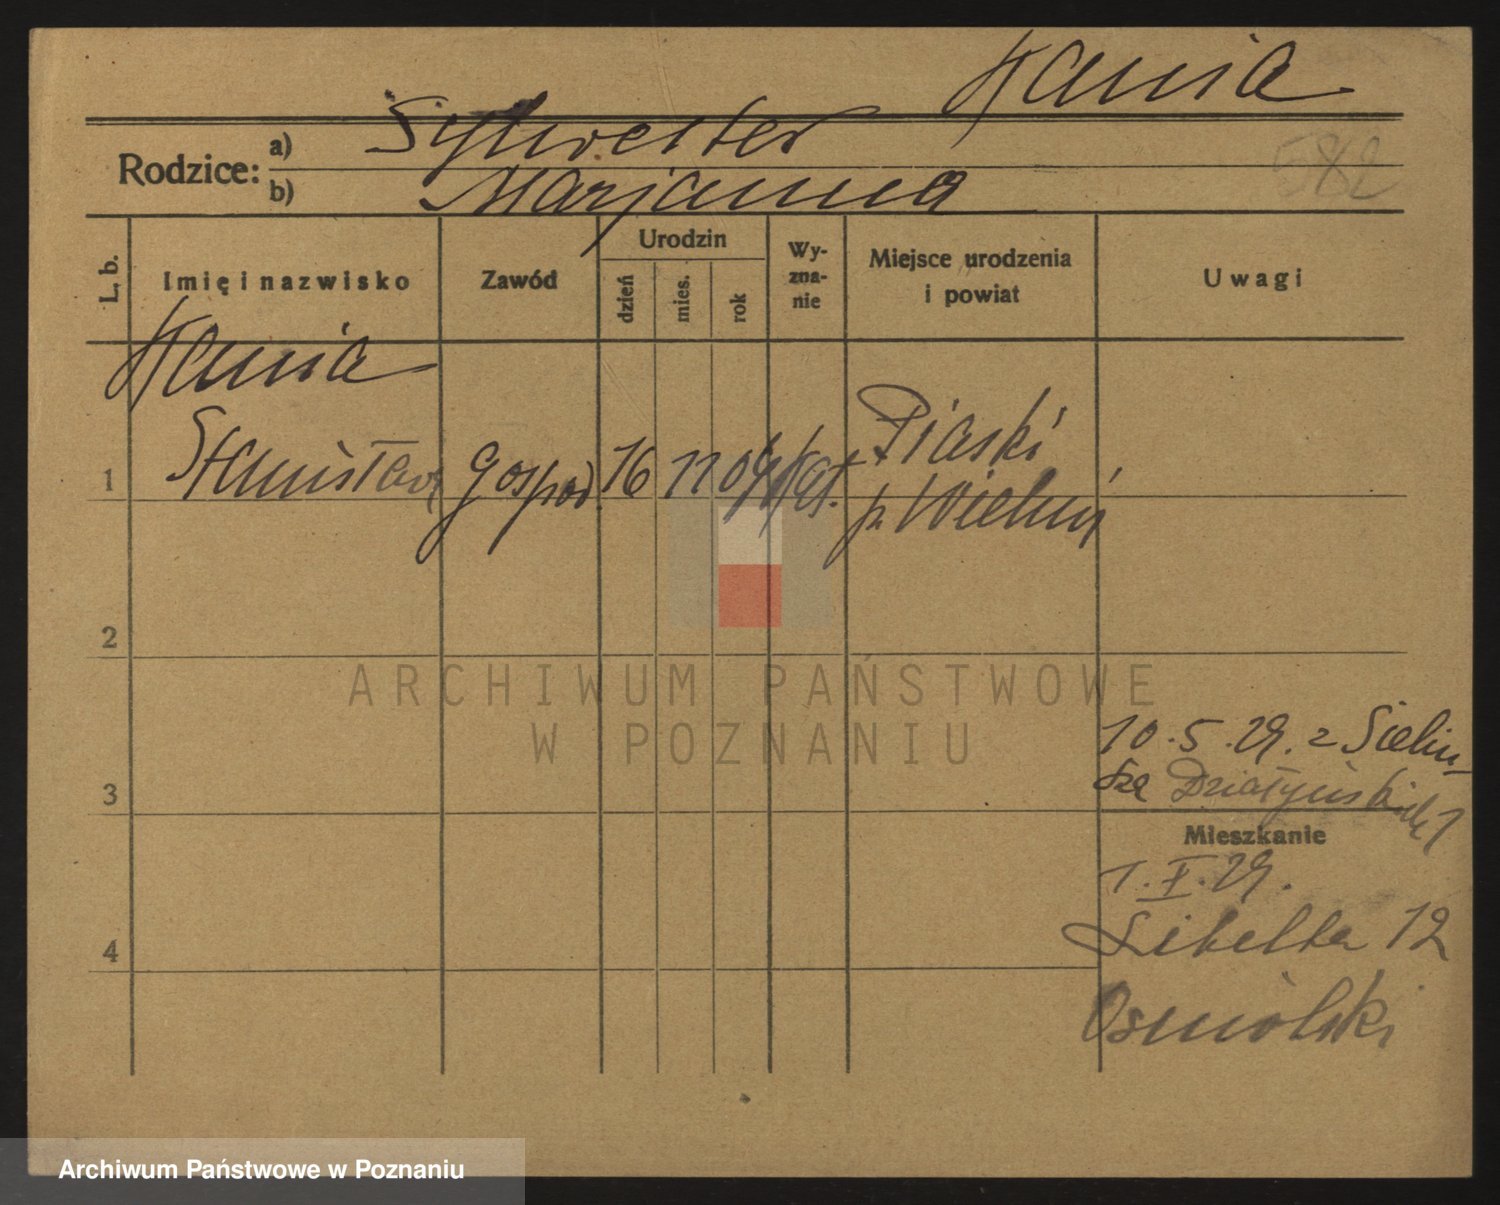 Kania
Rodzice:
a) Sylwester
b) Marjanna
582
L. b.
Imię i nazwisko
Zawód
Urodzin
dzień
mies.
rok
Wy-
zna-
nie
Miejsce urodzenia
i powiat
Uwagi
Kania
1 Stanisława gospod. 16 11 04 kat. Piaski
p. Wieluń
2
3
4
10.5.29. z Sielin
Działyńskich 1
Mieszkanie
1.V.29.
Libelta 12
Osmólski
ARCHIWUM PAŃSTWOWE
W POZNANIU
Archiwum Państwowe w Poznaniu